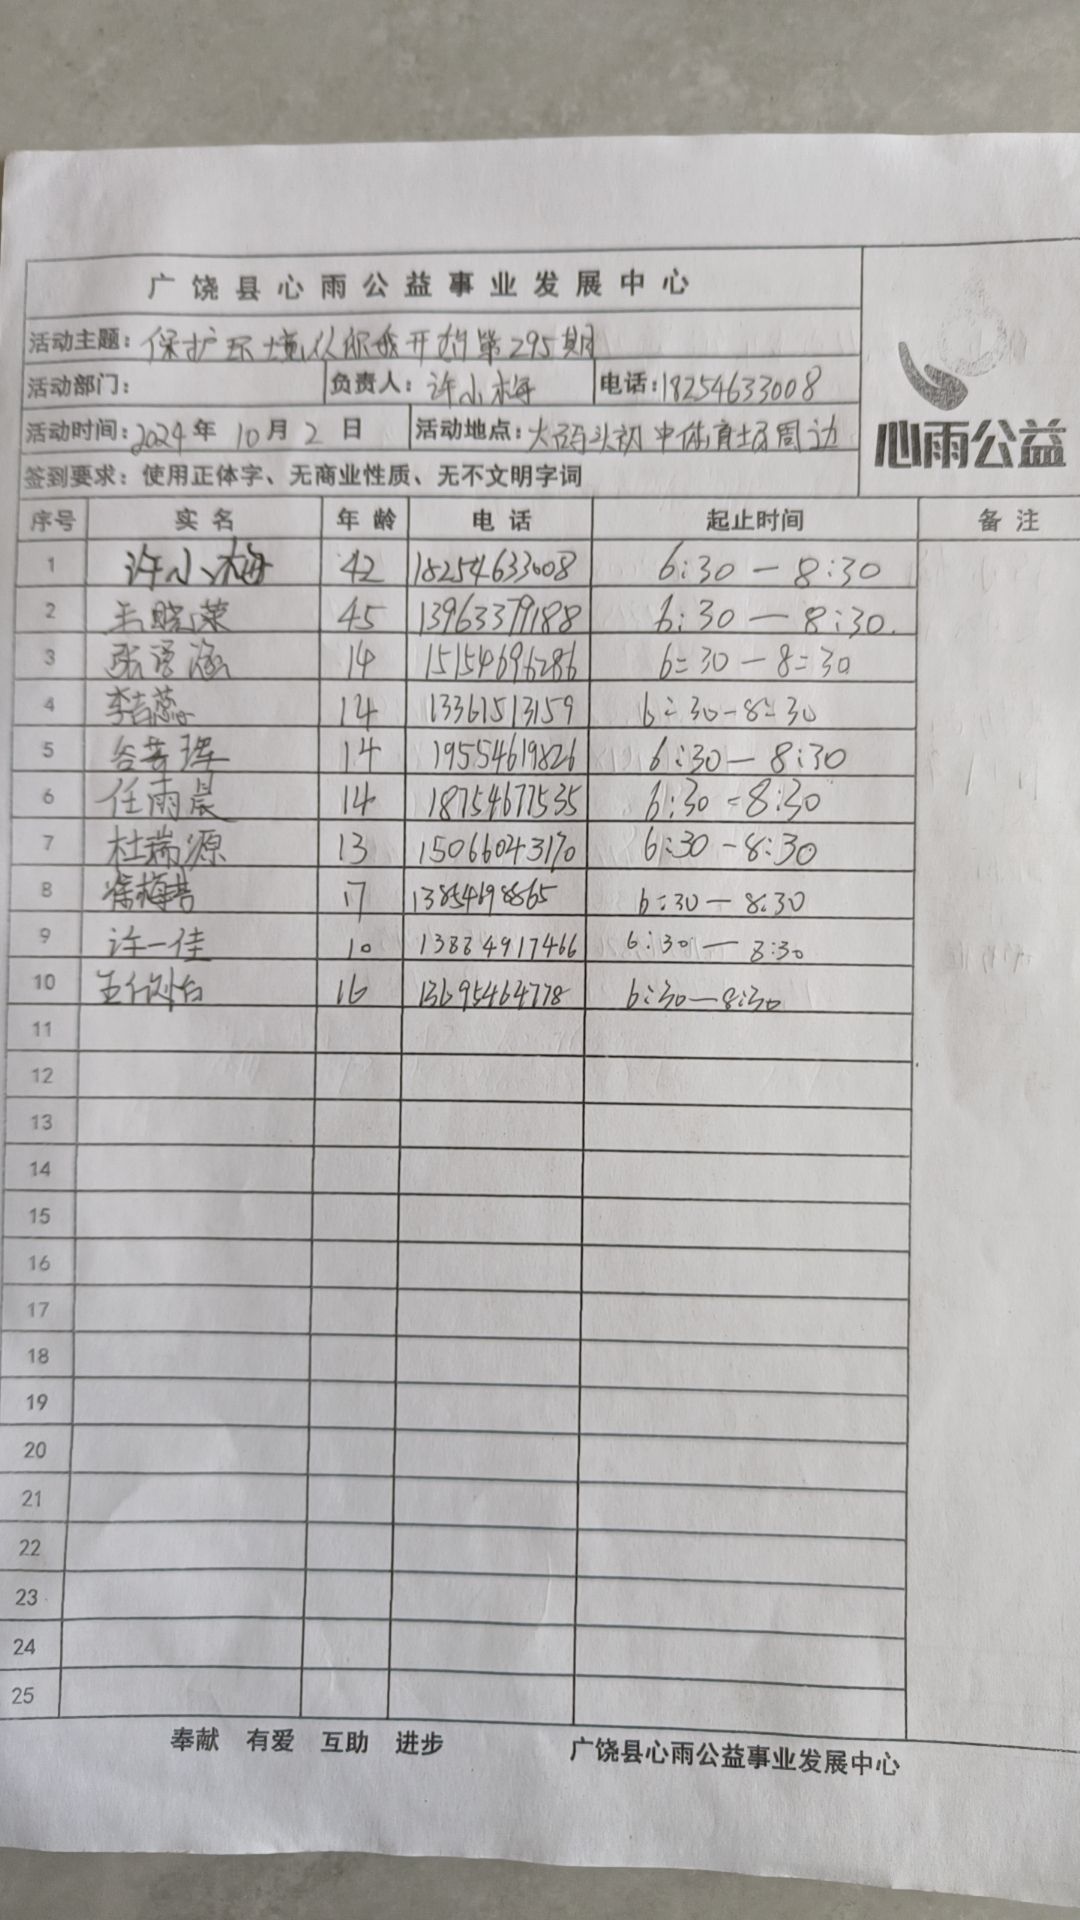 广饶县心雨公益事业发展中心
活动主题：保护环境从你我开始第295期
活动部门： 负责人：许小梅 电话：18254633008
活动时间：2024年10月2日 活动地点：大码头初中体育场周边
心雨公益
签到要求：使用正体字、无商业性质、无不文明字词
序号 实名 年龄 电话 起止时间 备注
1 许小梅 42 18254633008 6:30—8:30
2 王晓荣 45 13963379188 6:30—8:30.
3 张语涵 14 15154696286 6:30—8:30
4 李吉蕊 14 13361513159 6:30-8:30
5 14 19554619826 6:30—8:30
6 任雨晨 14 18754677535 6:30-8:30
7 杜瑞源 13 15066043170 6:30-8:30
8 17 13854698865 6:30—8:30
9 许一佳 10 13884917466 6:30—8:30
10 16 13695464778 6:30—8:30
11
12
13
14
15
16
17
18
19
20
21
22
23
24
25
奉献 有爱 互助 进步 广饶县心雨公益事业发展中心